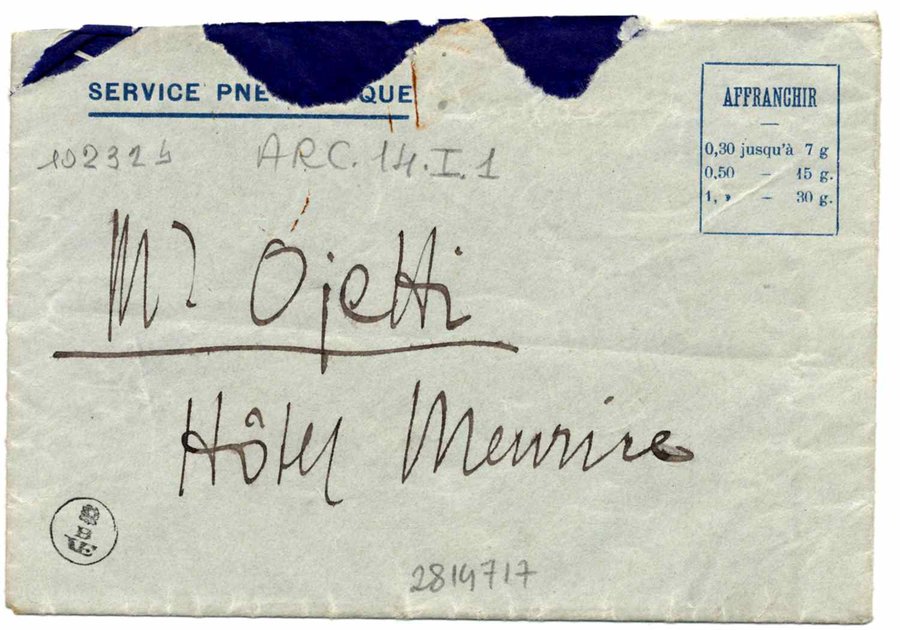 SERVICE PNE QUE
AFFRANCHIR
0,30 jusqu'à 7 g
0,50 — 15 g.
1, » — 30 g.
ARC. 14. I. 1
Mr Ojetti
Hôtel Meurice
2819717